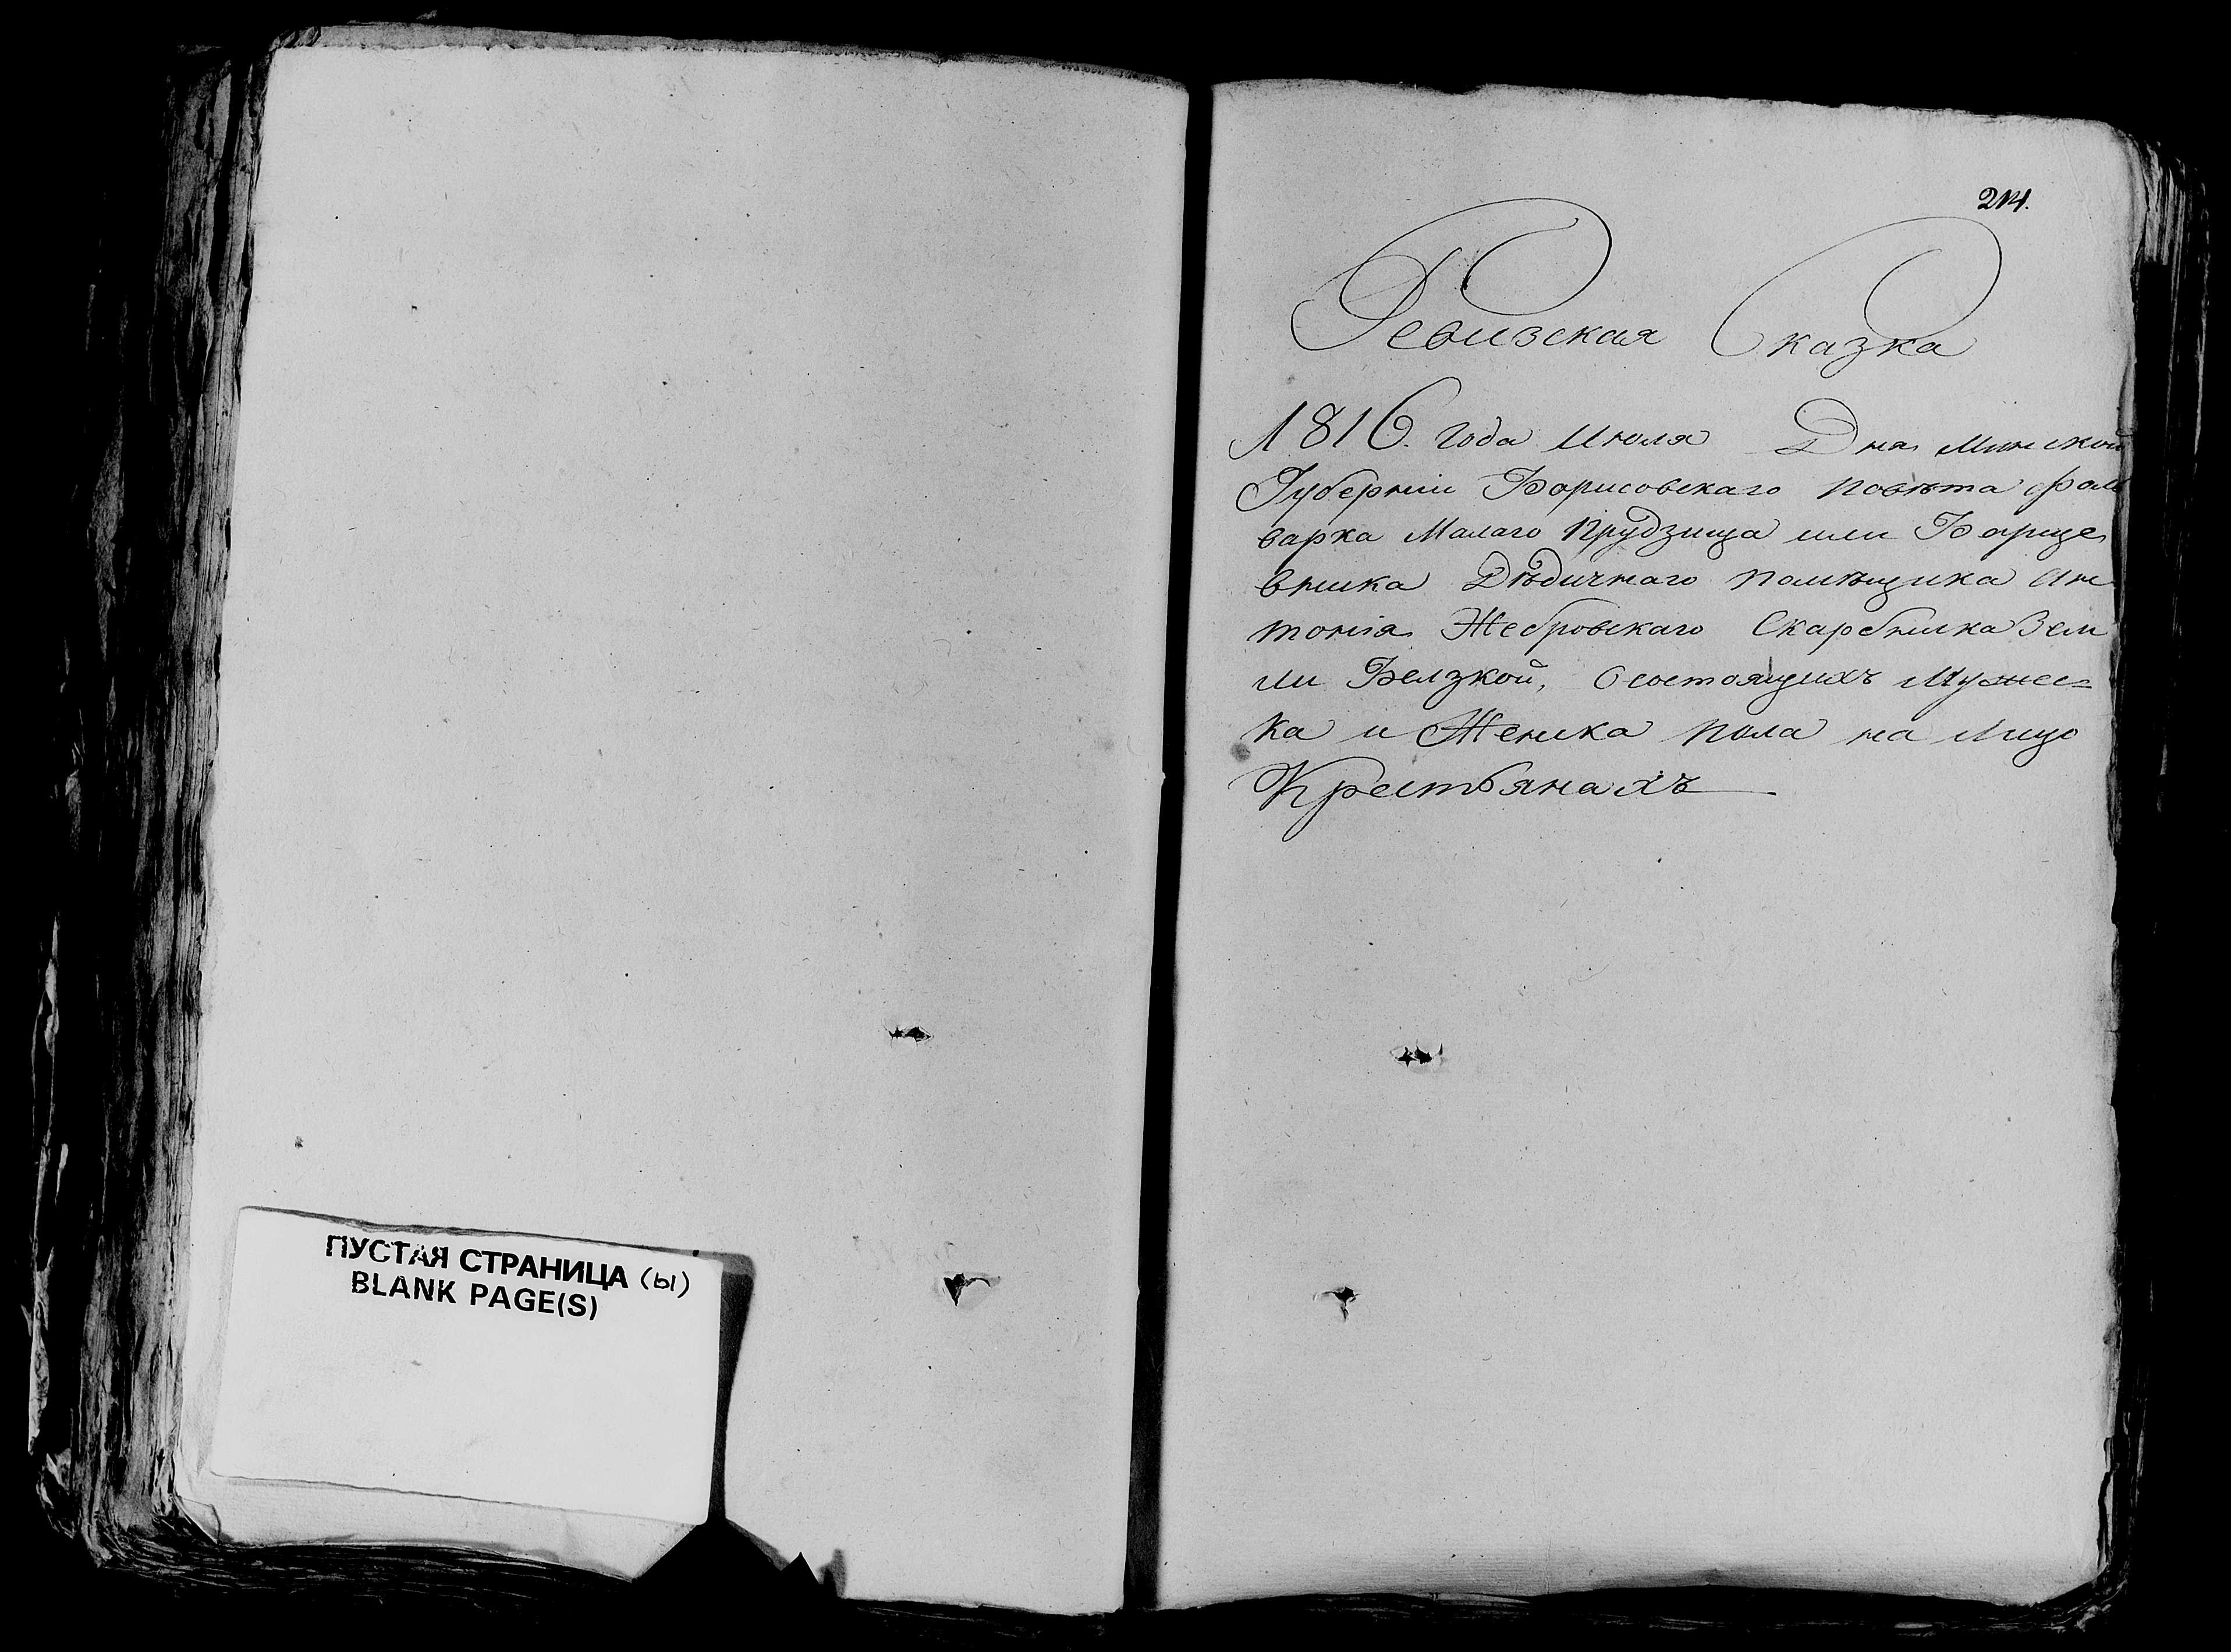 ПУСТАЯ СТРАНИЦА (ы)
BLANK PAGE(S)
214.
Ревизская Сказка
1816. Года Июля Дня Минской
Губернии Борисовскаго Повѣта фоль
варка Малаго Прудзища или Барще
вника Дѣдичнаго Помѣщика Ан
тонія Жебровскаго Скарбника Зем
ли Белзкой, О состоящихъ Мужес=
ка и Женска Пола на Лицо
Крестьянахъ